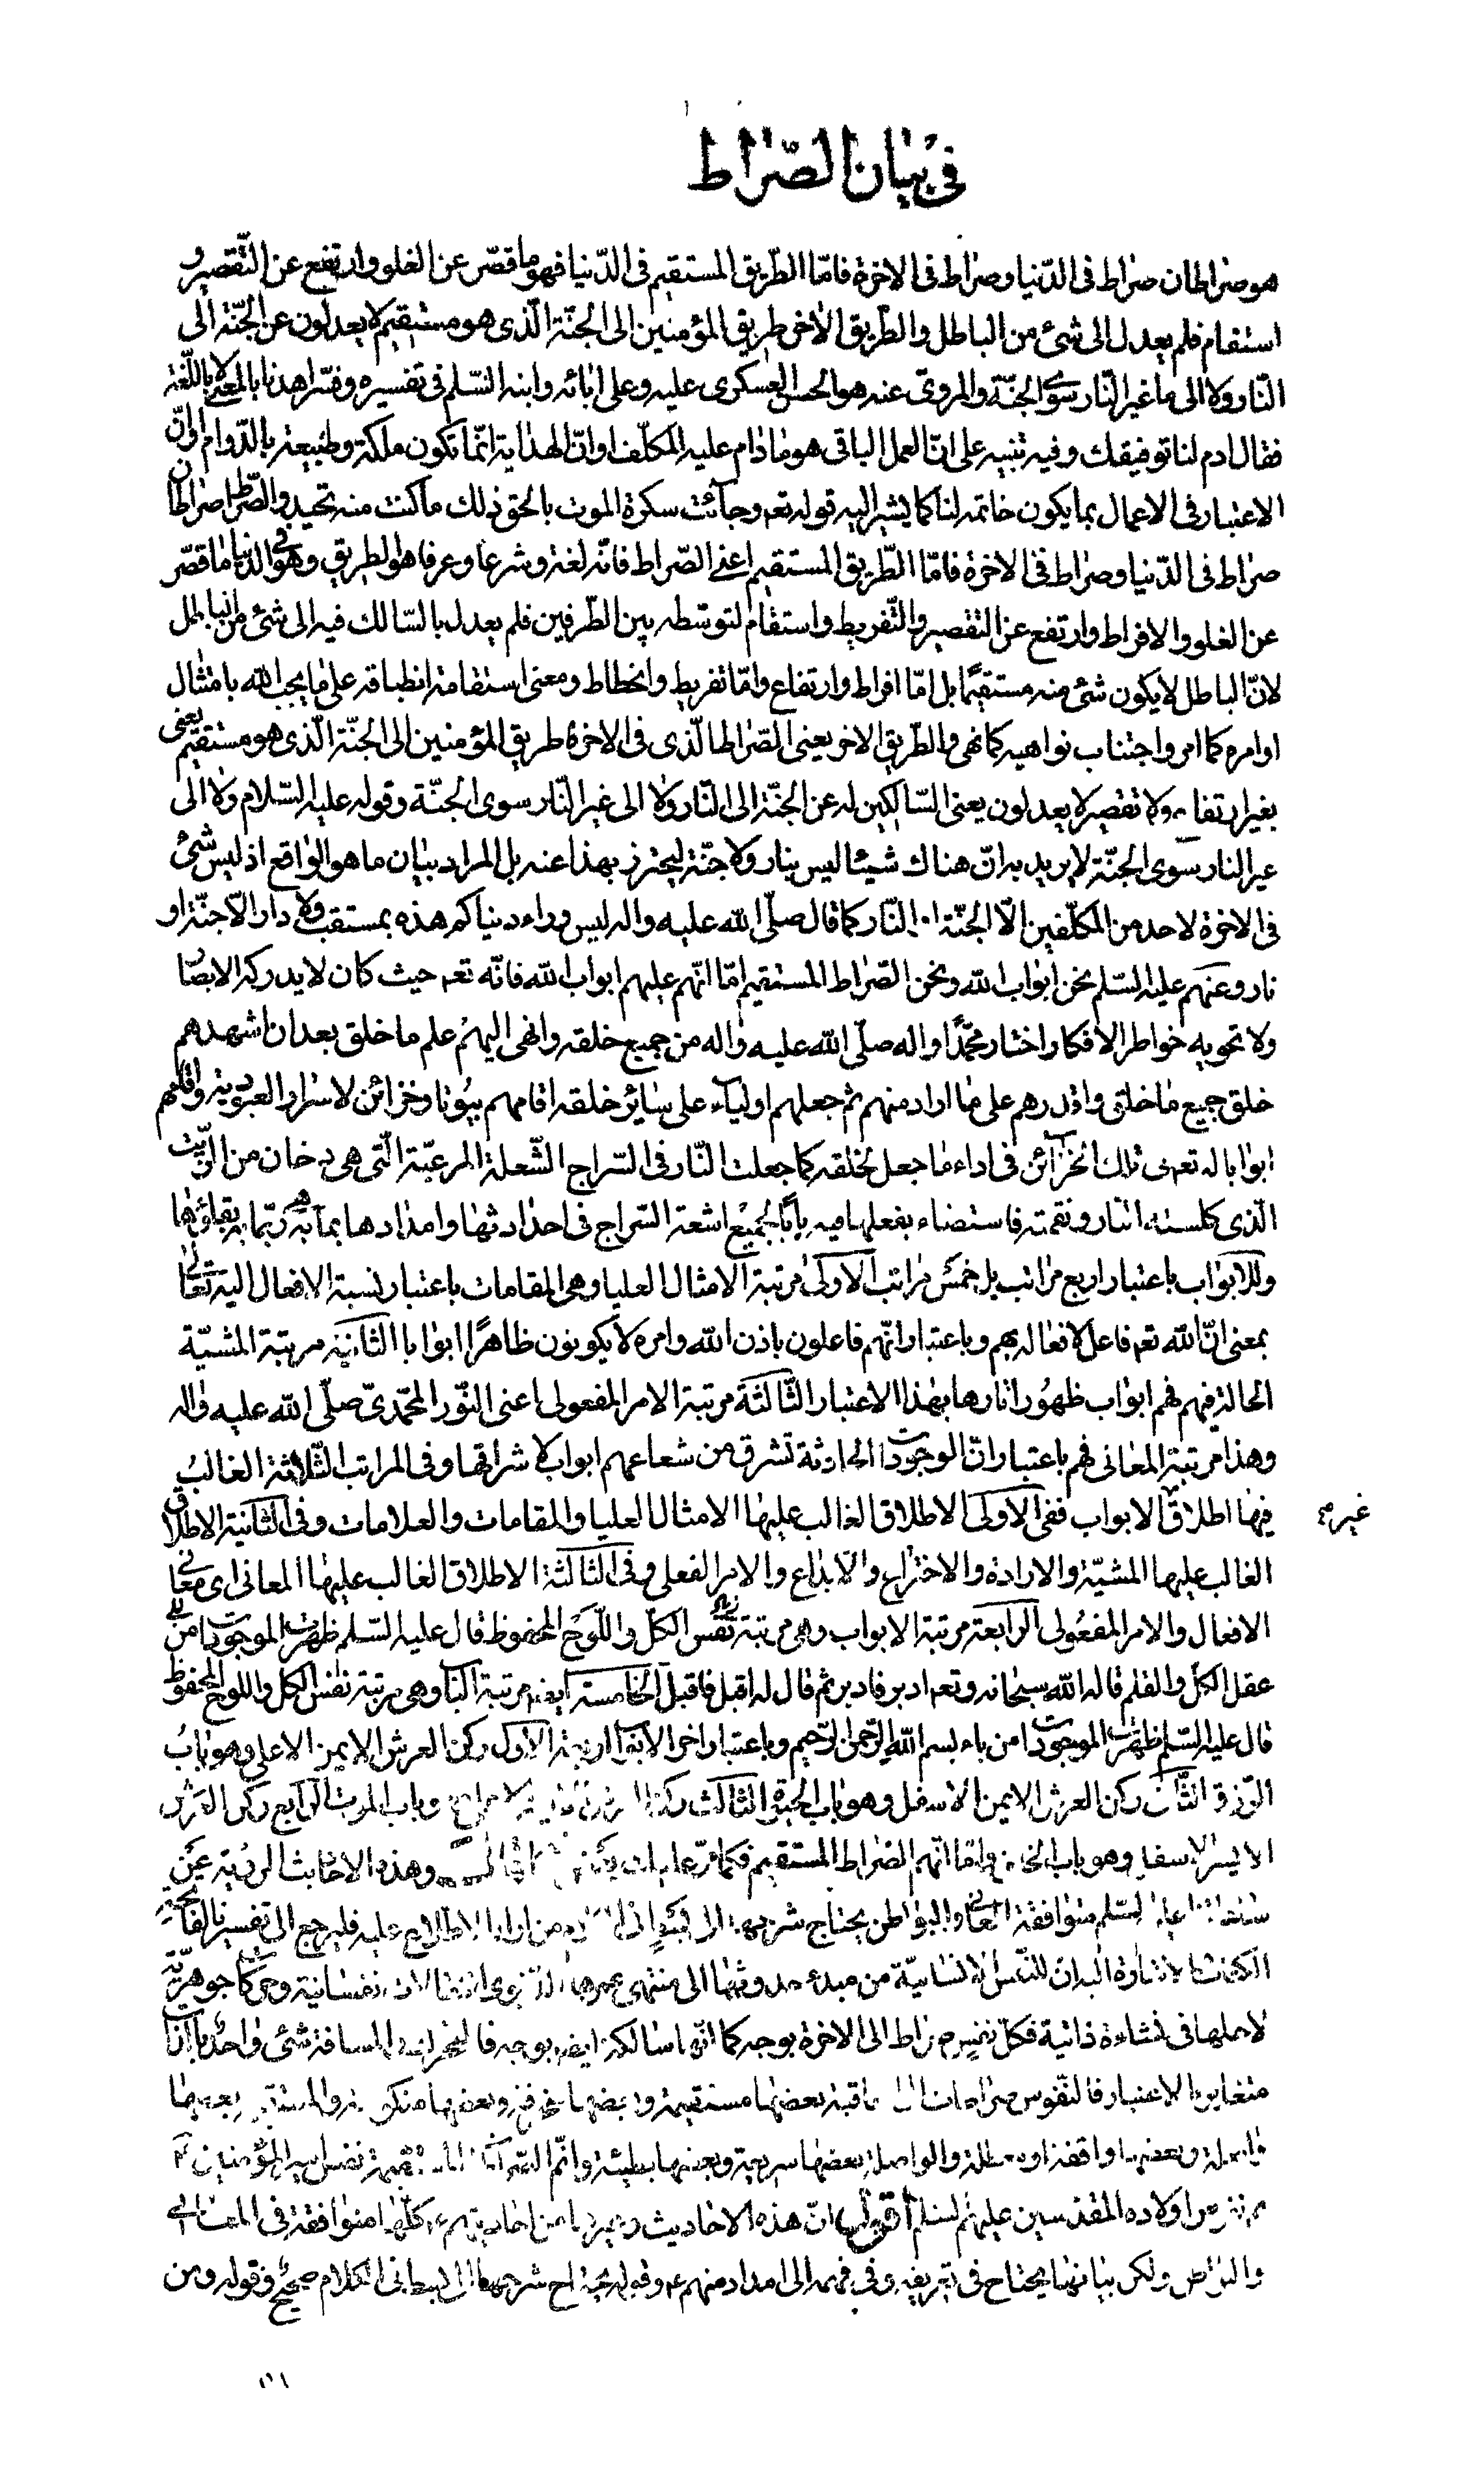 في بيان الصّراط
هو صراطان صراط في الدّنيا وصراط في الاخرة فامّا الطّريق المستقيم في الدّنيا فهو ما قصّر عن الغلو وارتفع عن التّقصير و
استقام فلم يعدل الى شئ من الباطل والطّريق الاخر طريق المؤمنين الى الجنّة الّذى هو مستقيم لا يعدلون عن الجنّة الى
النّار ولا الى ما غير النّار سوى الجنّة والمروىّ عنه هو الحسن العسكرى عليه وعلى ابائه وابنه السّلم في تفسيره وفسّر اهدنا بالمعنى لا باللّغة
فقال ادم لنا توفيقك وفيه تنبيه على انّ العمل الباقى هو ما دام عليه المكلّف او انّ الهداية انّما تكون ملكة وطبيعة بالدّوام او انّ
الاعتبار في الاعمال بما يكون خاتمه لنا كما يشير اليه قوله تعه وجائت سكرة الموت بالحق ذلك ما كنت منه تحيد والصّراط صراطان
صراط في الدّنيا وصراط في الاخرة فامّا الطّريق المستقيم اعنى الصّراط فانّه لغة وشرعا وعرفا هو الطريق وهو في الدنيا ما قصّر
عن الغلو والافراط وارتفع عن التقصير والتّفريط واستقام لتوسّطه بين الطّرفين فلم يعدل بالسّالك فيه الى شئ من الباطل
لانّ الباطل لا يكون شئ منه مستقيمًا بل امّا افراط وارتفاع وامّا تفريط وانحطاط ومعنى استقامته انطباقه على ما يحب الله بامتثال
اوامره كما امر واجتناب نواهيه كما نهى والطّريق الاخر يعنى الصّراط الّذى في الاخرة طريق المؤمنين الى الجنّة الّذى هو مستقيم يعنى
بغير ارتفاع ولا تقصير لا يعدلون يعنى السّالكين له عن الجنّة الى النّار ولا الى غير النّار سوى الجنّة وقوله عليه السّلام ولا الى
غير النار سوى الجنّة لا يريد به انّ هناك شيئا ليس بنار ولا جنّة ليحترز بهذا عنه بل المراد بيان ما هو الواقع اذ ليس شئ
في الاخرة لاحد من المكلّفين الّا الجنّة او النّار كما قال صلّى الله عليه واله ليس وراء دنياكم هذه بمستقب ولا دار الّا جنّة او
نار وعنهم عليه السّلم نحن ابواب الله ونحن الصّراط المستقيم امّا انّهم عليهم ابواب الله فانّه تعه حيث كان لا يدركه الابصار
ولا تحويه خواطر الافكار اختار محمّدًا واله صلّى الله عليه واله من جميع خلقه وانهى اليهم علم ما خلق بعد ان اشهدهم
خلق جميع ما خلق واقدرهم على ما اراد منهم ثم جعلهم اولياء على سائر خلقه اقامهم بيوتا وخزائن لاسرار العبودية واقامهم
ابوابا له تعه الى تلك الخزائن في اداء ما جعل لخلقه كما جعلت النّار في السّراج الشّعلة المرئيّة الّتى هى دخان من الزّيت
الّذى كلسته النّار ونعّمته فاستضاء بفعلها فيه بابًا لجميع اشعة السّراج في احداثها وامدادها بما به بقاؤها
وللابواب باعتبار اربع مراتب بل خمس مراتب الاولى مرتبة الامثال العليا وهى المقامات باعتبار نسبة الافعال اليه تعالى
بمعنى انّ الله تعه فاعل لافعاله بهم وباعتبار انّهم فاعلون باذن الله وامره لا يكونون ظاهرًا ابوابا الثّانية مرتبة المشيّة
الحالة فيهم فهم ابواب ظهور اثارها بهذا الاعتبار الثّالثة مرتبة الامر المفعولى اعنى النّور المحمّدىّ صلّى الله عليه واله
وهذا مرتبة المعانى فهم باعتبار انّ الوجودات الحادثة تشرق من شعاعهم ابواب لاشراقها وفى المراتب الثّلاثة الغالب
فيها اطلاق الابواب ففى الاولى الاطلاق الغالب عليها الامثال العليا والمقامات والعلامات وفى الثّانية الاطلاق
غير
الغالب عليها المشيّة والارادة والاختراع والابداع والامر الفعلى وفى الثّالثة الاطلاق الغالب عليها المعانى اى معانى
الافعال والامر المفعولى الرابعة مرتبة الابواب وهى مرتبة نفس الكلّ واللّوح المحفوظ قال عليه السّلم ظهرت الموجودات من
عقل الكلّ والقلم قال له الله سبحانه وتعه ادبر فادبر ثم قال له اقبل فاقبل الخامسة ايضا مرتبة الباب وهى مرتبة نفس الكل واللوح المحفوظ
قال عليه السّلم ظهرت الموجودات من باء بسم الله الرّحمن الرّحيم وباعتبار اخر الابواب اربعة الاول ركن العرش الايمن الاعلى وهو باب
الرّزق الثّانى ركن العرش الايمن الاسفل وهو باب الحيوة الثّالث ركن العرش الايسر الاعلى وهو باب الموت الرّابع ركن العرش
الايسر الاسفل وهو باب الخلق وامّا انّهم الصّراط المستقيم فكما مرّ وهذه الاحاديث المرويّة عن
عليهم السّلم متوافقة المعانى والبواطن يحتاج شرحها من اراد الاطّلاع عليه فليرجع الى تفسيرنا لفاتحة
الكتاب انّ للنّفس الانسانيّة من مبدء حدوثها الى منتهى عمرها انتقالات نفسانية وحركات جوهريّة
في نشاءة ذاتية فكلّ نفس صراط الى الاخرة بوجه كما انّها سالكة ايضا بوجه فالمتحرك والمسافة شئ واحد بالذّات
متغاير بالاعتبار فالنّفوس صراطات الى العاقبة بعضها مستقيمة وبعضها منحرفة وبعضها منكوسة والمستقيمة بعضها
واصلة وبعضها واقفة او معطلة والواصلة بعضها سريعة وبعضها بطيئة واتمّ الصّراطات المستقيمة نفس امير المؤمنين
من اولاده المقدسين عليهم السّلم اقول انّ هذه الاحاديث وغيرها من احاديثهم كلّها متوافقة في المعانى
والبواطن ولكن بيانها يحتاج في تعريفه وفى فهمه الى امداد منهم ع وقوله يحتاج شرحها الى بسط في الكلام صحيح وقوله ومن